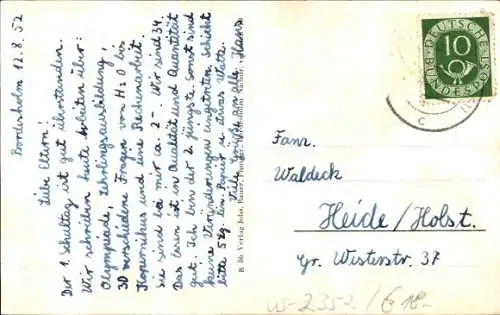 Bordesholm 12.8.52
Liebe Eltern!
Der 1. Schultag ist gut überstanden.
Wir schreiben heute Arbeiten über:
Olympiade, Lehrlingsausbildung,
30 verschiedene Fragen von H.O bis
Kopernikus und eine Rechenarbeit.
Sie sind bei mir ca 2-. Wir sind 34.
Das Essen ist in Qualität und Quantität
gut. Ich bin der 2. jüngste. Sonst sind
keine Veränderungen eingetreten. Schickt
bitte 5 Bg. Lin. Papier u. etwas Watte.
Viele Grüße an alle Hans
DEUTSCHE
BUNDESPOST
10
Fam.
Waldeck
Heide/Holst.
Gr. Westerstr. 37